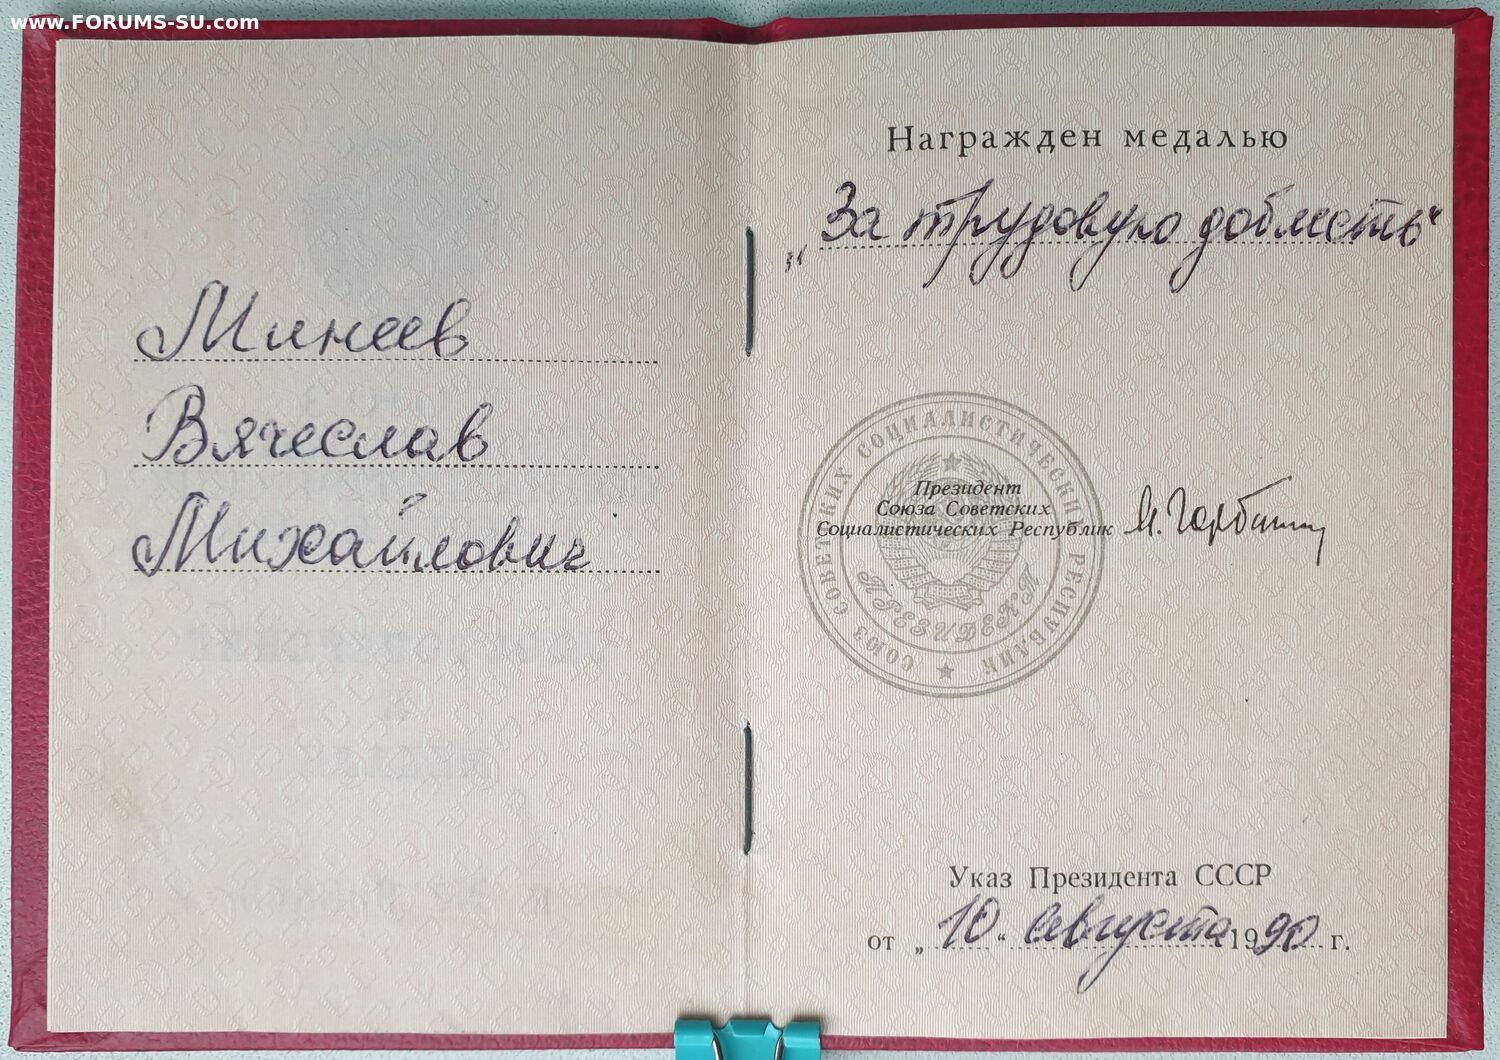 www.FORUMS-SU.com
Минеев
Вячеслав
Михайлович
Награжден медалью
„За трудовую доблесть“
СОЮЗ СОВЕТСКИХ СОЦИАЛИСТИЧЕСКИХ РЕСПУБЛИК
ПРЕЗИДЕНТ
Президент
Союза Советских
Социалистических Республик М. Горбачев
Указ Президента СССР
от „10“ августа 1990 г.